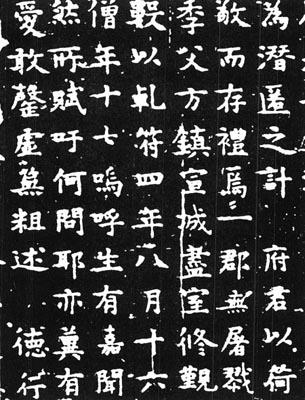 為潛匿之計 府君以荷
敬而存禮焉二郡無屠戮
季父方鎮宣城盡室修覲
以乹符四年八月十六
僧年十七嗚呼生有嘉聞
然所賦吁何問耶亦冀有
愛敢罄虛蕪粗述 德行